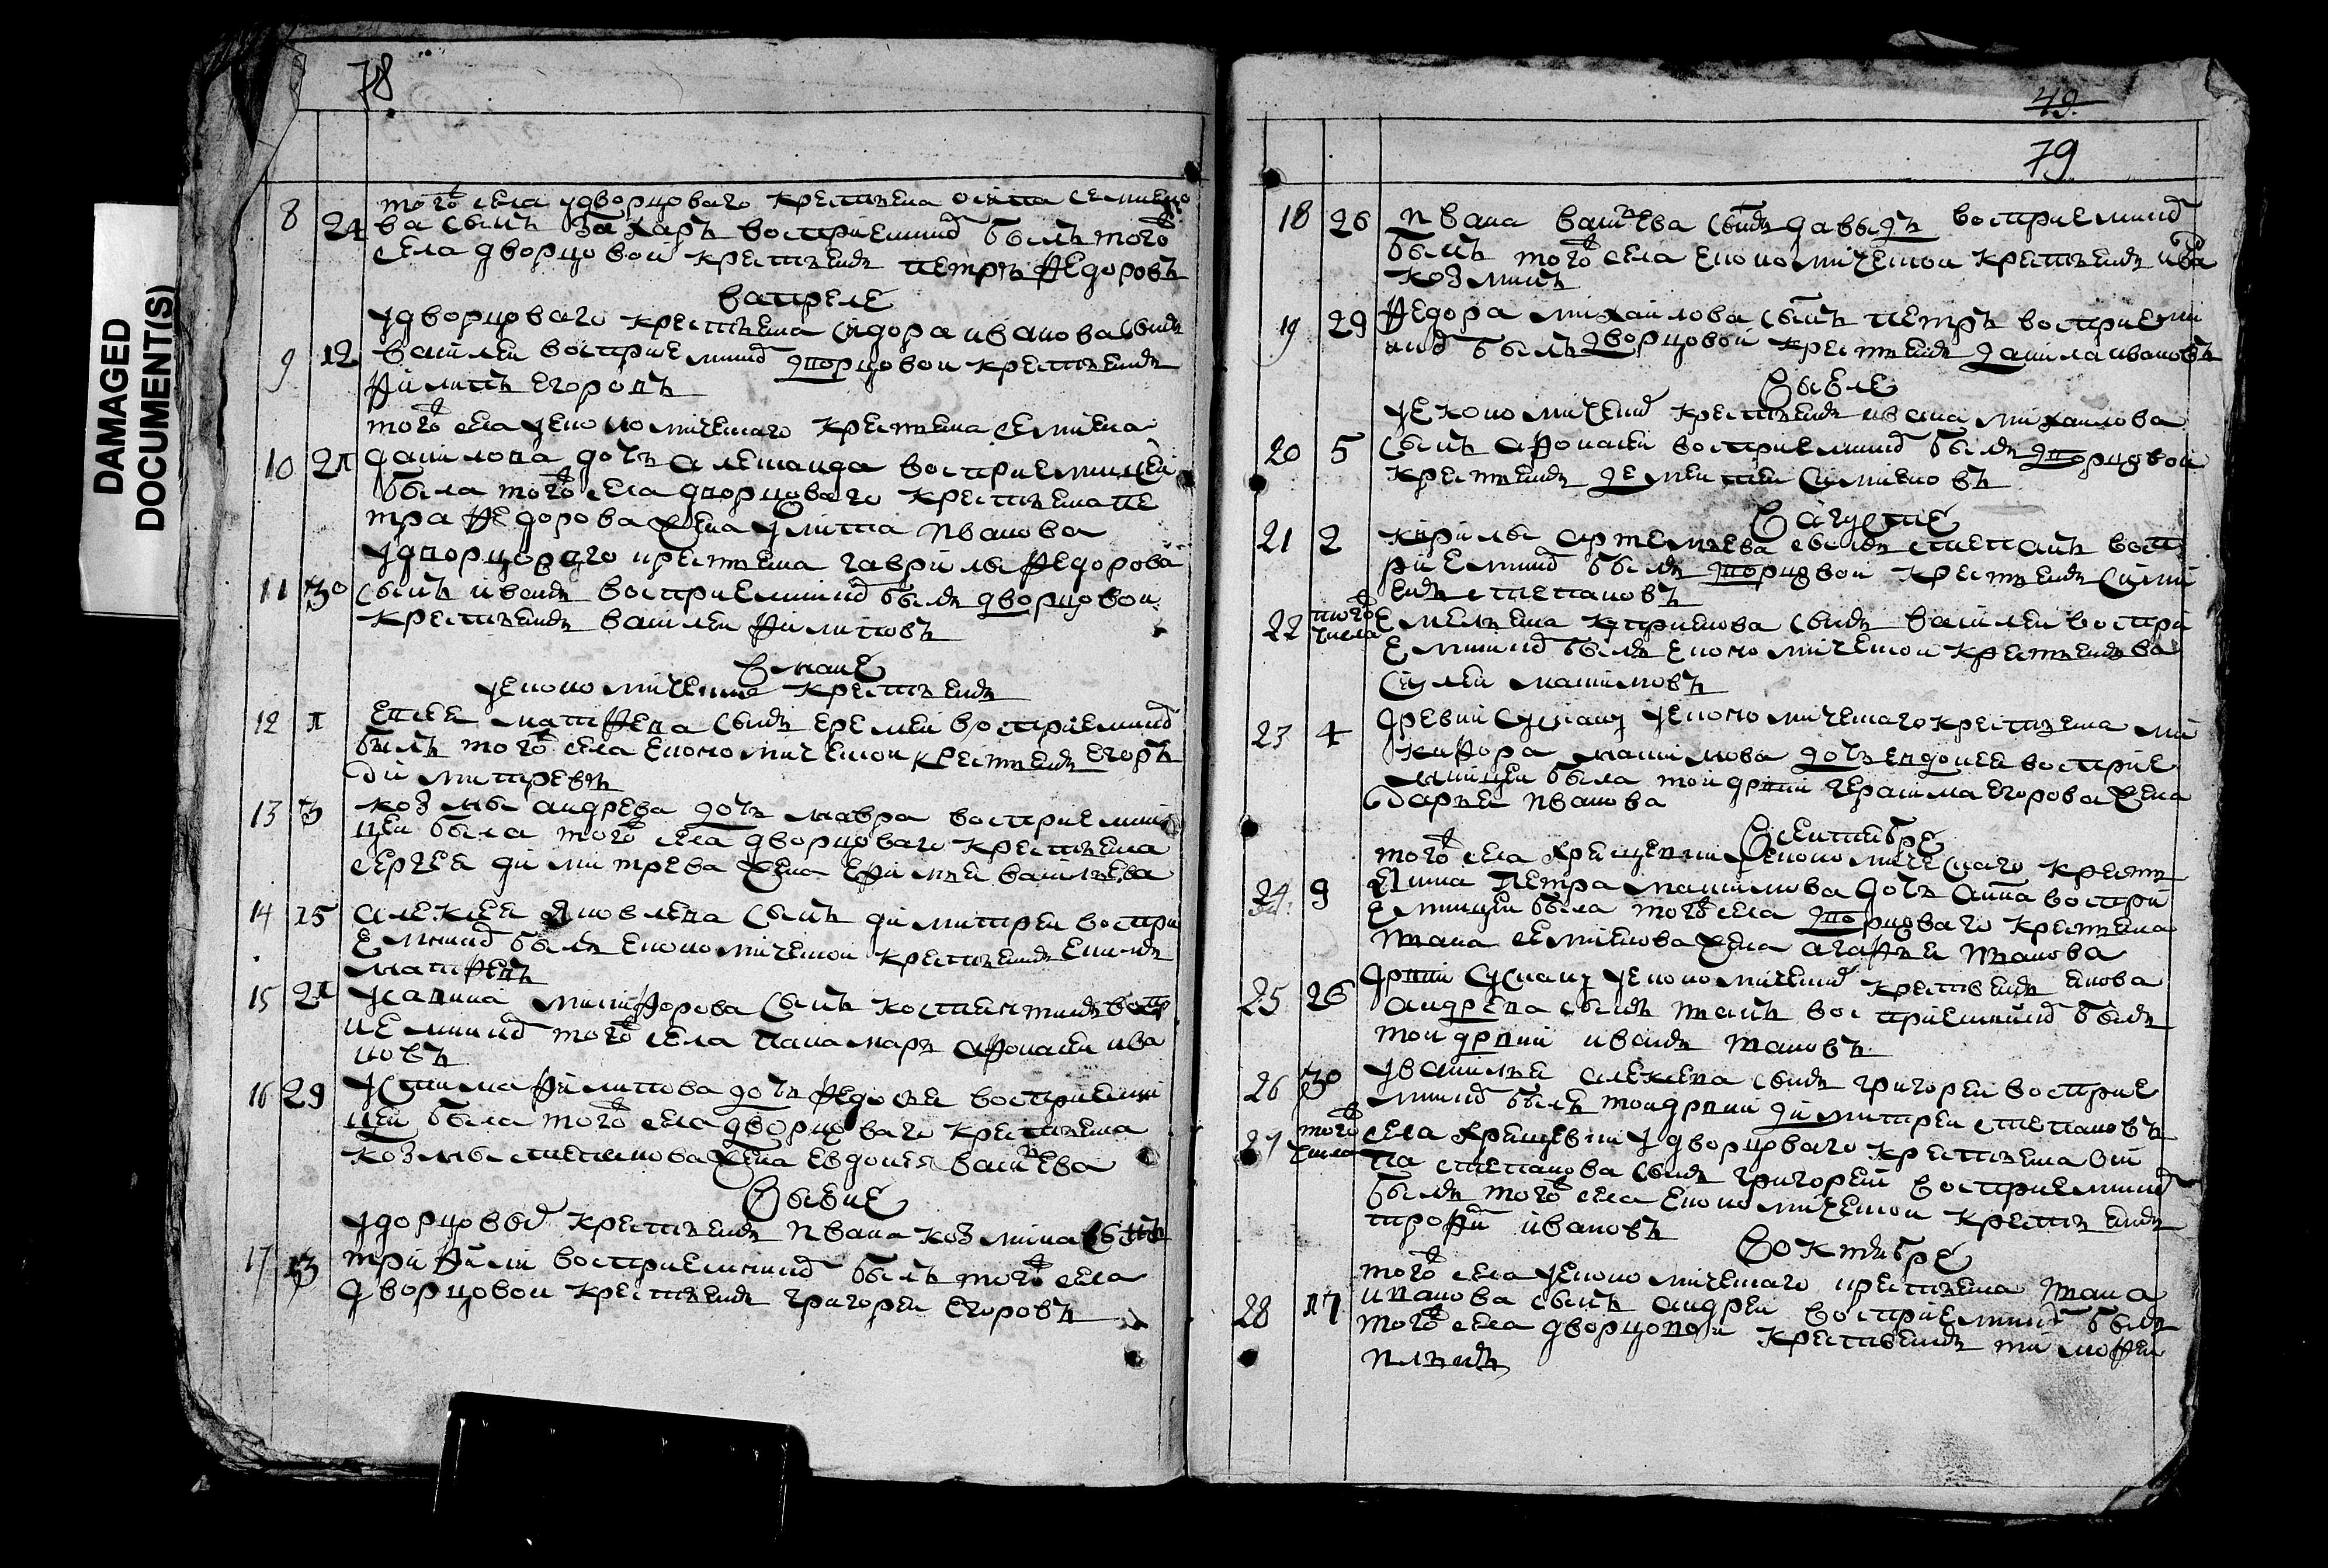 DAMAGED
DOCUMENT(S)
78
8 24 того села удворцоваго крестьяна осипа семено
ва сынъ захаръ восприемникъ былъ того
села дворцовой крестьянинъ петръ федоровъ
вапреле
удворцоваго крестьянина сидора иванова сынъ
9 12 василеи восприемникъ дворцовои крестьянинъ
филипъ егоровъ
того села уекономическаго крестьянина семиена
10 21 данилова дочь александра восприемницеи
была того села дворцоваго крестьянина пе
тра федорова жена улита иванова
удворцоваго крестьянина гаврилы федорова
11 30 сынъ иванъ восприемникъ былъ дворцовои
крестьянинъ василеи филиповъ
вмаие
уекономическихъ крестьянъ
12 1 матфева сынъ еремеи восприемникъ
былъ того села економическои крестьянинъ егоръ
димитревъ
13 3 козмы андрева дочь мавра восприемни
цеи была того села дворцоваго крестьянина
сергея димитрева жена ефимья васильева
14 15 алексея яковлева сынъ димитреи воспри
емникъ былъ економическои крестьянинъ
матфевъ
15 21 усавина никифорова сынъ костентинъ воспр
иемникъ того села панамарь афонасеи ива
новъ
16 29 устина филипова дочь федосья восприемни
цеи была того села дворцоваго крестьянина
козмы степанова жена евдокея васильева
выюне
удворцовыхъ крестьянъ ивана козмина сынъ
17 13 трифили восприемникъ былъ того села
дворцовои крестьянинъ григореи егоровъ
49.
79.
18 26 ивана васильева сынъ давыдъ восприемникъ
былъ того села економическои крестьянинъ ива
козминъ
19 29 федора михаилова сынъ петръ восприемни
икъ былъ дворцовой крестьянинъ данила ивановъ
выюле
уекономическихъ крестьянъ ивана михаилова
20 5 сынъ афонасеи восприемникъ былъ дворцовои
крестьянинъ дементеи симионовъ
вавгусте
21 2 кирилы артемьева сынъ степанъ восп
риемникъ былъ дворцовои крестьянинъ сими
енъ степановъ
22 того числа емельяна куприенова сынъ василеи воспри
емникъ былъ економическои крестьянинъ ва
силеи максимовъ
23 4 древни уекономическаго крестьянина ни
кифора максимова дочь евдокея восприе
мницеи была тои древни герасима егорова жена
дарья иванова
всентебре
того села уекономическаго крестья
24 9 нина петра максимова дочь анна воспри
емницеи была того села дворцоваго крестьянина
ивана семиенова жена агафья иванова
древни уекономическихъ крестьянъ
25 26 андрева сынъ иванъ восприемникъ былъ
тои древни иванъ ивановъ
26 30 увасилья алексева сынъ григореи восприе
мникъ былъ тои древни димитреи степановъ
27 того числа села удворцоваго крестьянина оси
па степанова сынъ григореи восприемникъ
былъ того села економическои крестьянинъ
трофимъ ивановъ
воктебре
того села уекономическаго крестьянина ивана
28 17 иванова сынъ андреи восприемникъ былъ
того села дворцовои крестьянинъ тимофеи
ильинъ